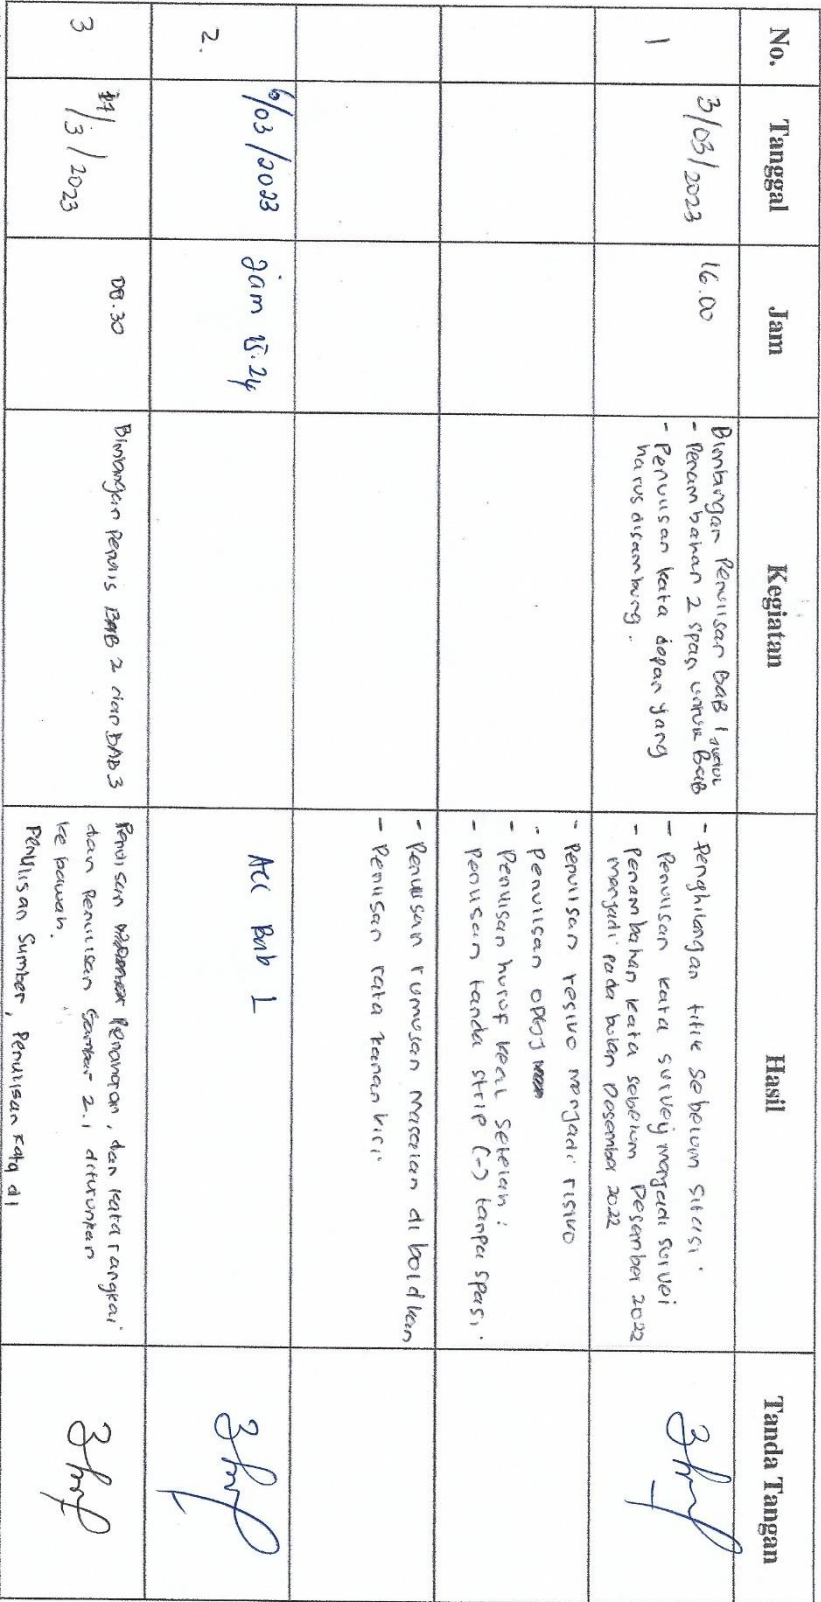 No. Tanggal Jam Kegiatan Hasil Tanda Tangan
1 3/03/2023 16.00
Bimbingan Penulisan BAB 1
- Penambahan 2 spasi untuk judul BaB
- Penulisan kata depan yang
harus disambung.
- Penghilangan titik sebelum sitasi.
- Penulisan kata survey menjadi survei
- penambahan kata sebelum Desember 2022
menjadi pada bulan Desember 2022
- Penulisan resiko menjadi risiko
- penulisan
- Penulisan huruf kecil setelah :
- Penulisan tanda strip (-) tanpa spasi.
- Penulisan rumusan masalah di bold kan
- Penulisan rata kanan kiri
2. 6/03/2023 jam 15.24
Acc Bab 1
3 /3/2023 08.30
Bimbingan Penulis BAB 2 dan BAB 3
Penulisan , dan kata rangkai
dan Penulisan Gambar 2.1 diturunkan
ke bawah.
Penulisan Sumber, Penulisan kata di